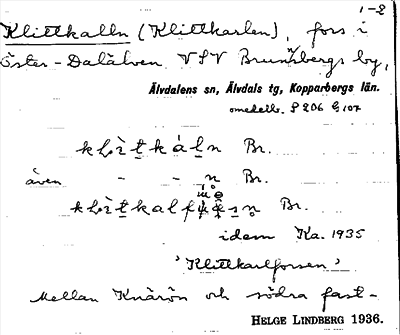 1-2
Klittkalln (Klittkarlen), fors i
Öster-Dalälven VSV Brunnsbergs by,
Älvdalens sn, Älvdals tg, Kopparbergs län.
omedelb. S 206 G 107
Br.
även - - n Br.
Br.
idem Ka. 1935
'Klittkarlforsen'
Mellan Knärön och södra fast-
HELGE LINDBERG 1936.